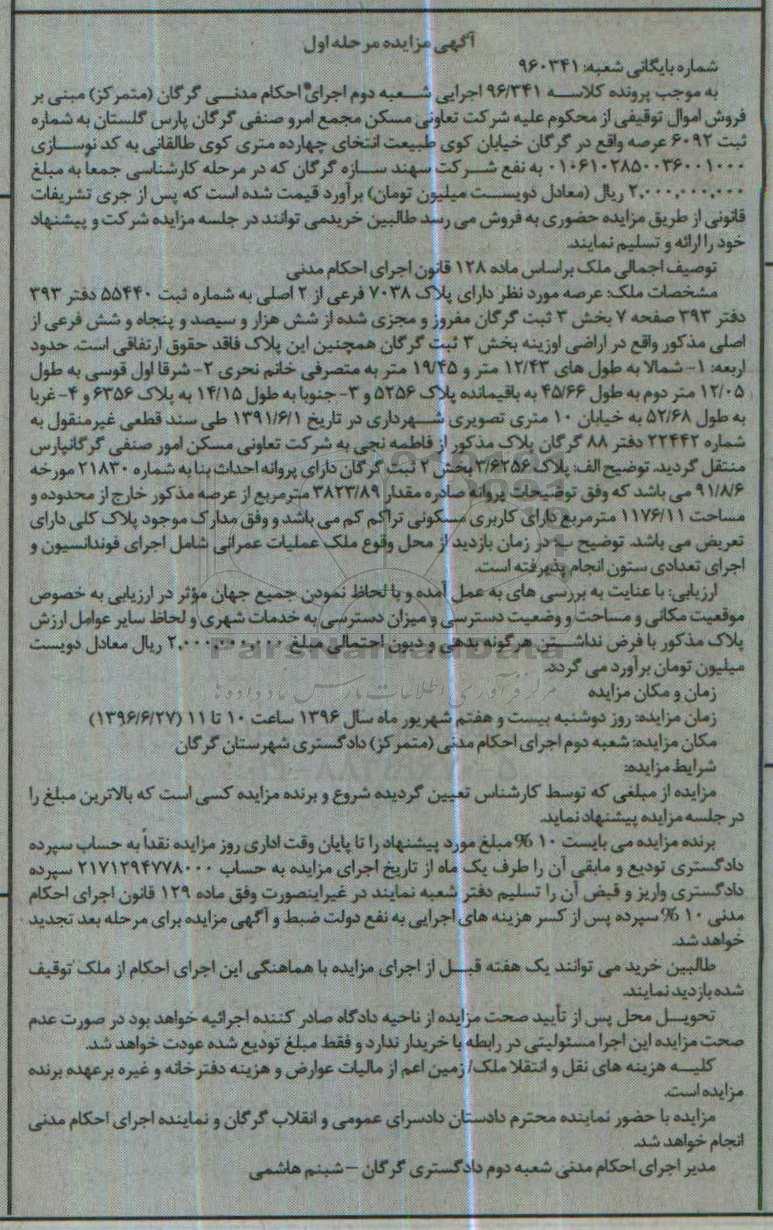 آگهی مزایده مرحله اول
شماره بایگانی شعبه: ۹۶۰۳۴۱
به موجب پرونده کلاسه ۹۶/۳۴۱ اجرایی شعبه دوم اجرای احکام مدنی گرگان (متمرکز) مبنی بر
فروش اموال توقیفی از محکوم علیه شرکت تعاونی مسکن مجمع امرو صنفی گرگان پارس گلستان به شماره
ثبت ۶۰۹۲ عرصه واقع در گرگان خیابان کوی طبیعت انتخای چهارده متری کوی طالقانی به کد نوسازی
۰۱۰۶۱۰۲۸۵۰۰۳۶۰۰۱۰۰۰ به نفع شرکت سهند سازه گرگان که در مرحله کارشناسی جمعا به مبلغ
۲,۰۰۰,۰۰۰,۰۰۰ ریال (معادل دویست میلیون تومان) برآورد قیمت شده است که پس از جری تشریفات
قانونی از طریق مزایده حضوری به فروش می رسد طالبین خریدمی توانند در جلسه مزایده شرکت و پیشنهاد
خود را ارائه و تسلیم نمایند.
توصیف اجمالی ملک براساس ماده ۱۲۸ قانون اجرای احکام مدنی
مشخصات ملک: عرصه مورد نظر دارای پلاک ۷۰۳۸ فرعی از ۲ اصلی به شماره ثبت ۵۵۴۴۰ دفتر ۳۹۳
دفتر ۳۹۳ صفحه ۷ بخش ۳ ثبت گرگان مفروز و مجزی شده از شش هزار و سیصد و پنجاه و شش فرعی از
اصلی مذکور واقع در اراضی اوزینه بخش ۳ ثبت گرگان همچنین این پلاک فاقد حقوق ارتفاقی است. حدود
اربعه: ۱- شمالا به طول های ۱۲/۴۳ متر و ۱۹/۴۵ متر به متصرفی خانم نحری ۲- شرقا اول قوسی به طول
۱۲/۰۵ متر دوم به طول ۴۵/۶۶ به باقیمانده پلاک ۵۲۵۶ و ۳- جنوبا به طول ۱۴/۱۵ به پلاک ۶۳۵۶ و ۴- غربا
به طول ۵۲/۶۸ به خیابان ۱۰ متری تصویری شهرداری در تاریخ ۱۳۹۱/۶/۱ طی سند قطعی غیرمنقول به
شماره ۲۲۴۴۲ دفتر ۸۸ گرگان پلاک مذکور از فاطمه نجی به شرکت تعاونی مسکن امور صنفی گرگانپارس
منتقل گردید. توضیح الف: پلاک ۳/۶۲۵۶ بخش ۲ ثبت گرگان دارای پروانه احداث بنا به شماره ۲۱۸۳۰ مورخه
۹۱/۸/۶ می باشد که وفق توضیحات پروانه صادره مقدار ۳۸۲۳/۸۹ مترمربع از عرصه مذکور خارج از محدوده و
مساحت ۱۱۷۶/۱۱ مترمربع دارای کاربری مسکونی تراکم کم می باشد و وفق مدارک موجود پلاک کلی دارای
تعریض می باشد. توضیح ب: در زمان بازدید از محل وقوع ملک عملیات عمرانی شامل اجرای فوندانسیون و
اجرای تعدادی ستون انجام پذیرفته است.
ارزیابی: با عنایت به بررسی های به عمل آمده و با لحاظ نمودن جمیع جهان مؤثر در ارزیابی به خصوص
موقعیت مکانی و مساحت و وضعیت دسترسی و میزان دسترسی به خدمات شهری و لحاظ سایر عوامل ارزش
پلاک مذکور با فرض نداشتن هرگونه بدهی و دیون احتمالی مبلغ ۲,۰۰۰,۰۰۰,۰۰۰ ریال معادل دویست
میلیون تومان برآورد می گردد.
زمان و مکان مزایده
زمان مزایده: روز دوشنبه بیست و هفتم شهریور ماه سال ۱۳۹۶ ساعت ۱۰ تا ۱۱ (۱۳۹۶/۶/۲۷)
مکان مزایده: شعبه دوم اجرای احکام مدنی (متمرکز) دادگستری شهرستان گرگان
شرایط مزایده:
مزایده از مبلغی که توسط کارشناس تعیین گردیده شروع و برنده مزایده کسی است که بالاترین مبلغ را
در جلسه مزایده پیشنهاد نماید.
برنده مزایده می بایست ۱۰ % مبلغ مورد پیشنهاد را تا پایان وقت اداری روز مزایده نقداً به حساب سپرده
دادگستری تودیع و مابقی آن را ظرف یک ماه از تاریخ اجرای مزایده به حساب ۲۱۷۱۲۹۴۷۷۸۰۰۰ سپرده
دادگستری واریز و قبض آن را تسلیم دفتر شعبه نمایند در غیراینصورت وفق ماده ۱۲۹ قانون اجرای احکام
مدنی ۱۰ % سپرده پس از کسر هزینه های اجرایی به نفع دولت ضبط و آگهی مزایده برای مرحله بعد تجدید
خواهد شد.
طالبین خرید می توانند یک هفته قبل از اجرای مزایده با هماهنگی این اجرای احکام از ملک توقیف
شده بازدید نمایند.
تحویل محل پس از تأیید صحت مزایده از ناحیه دادگاه صادر کننده اجرائیه خواهد بود در صورت عدم
صحت مزایده این اجرا مسئولیتی در رابطه با خریدار ندارد و فقط مبلغ تودیع شده عودت خواهد شد.
کلیه هزینه های نقل و انتقلا ملک/ زمین اعم از مالیات عوارض و هزینه دفترخانه و غیره برعهده برنده
مزایده است.
مزایده با حضور نماینده محترم دادستان دادسرای عمومی و انقلاب گرگان و نماینده اجرای احکام مدنی
انجام خواهد شد.
مدیر اجرای احکام مدنی شعبه دوم دادگستری گرگان – شبنم هاشمی